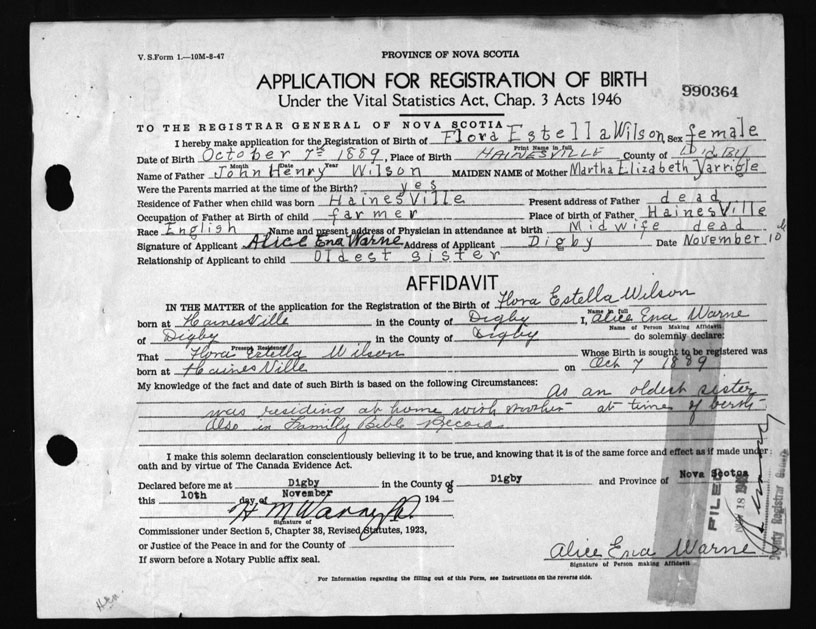 V. S. Form 1.—10M-8-47
PROVINCE OF NOVA SCOTIA
APPLICATION FOR REGISTRATION OF BIRTH
990364
Under the Vital Statistics Act, Chap. 3 Acts 1946
TO THE REGISTRAR GENERAL OF NOVA SCOTIA
I hereby make application for the Registration of Birth of Flora Estella Wilson Sex female
Print Name in full
Date of Birth October 7th 1889, Place of Birth HAINESVILLE County of Digby
Month Day Year
Name of Father John Henry Wilson MAIDEN NAME of Mother Martha Elizabeth Varrigle
Were the Parents married at the time of the Birth? yes
Residence of Father when child was born HainesVille Present address of Father dead
Occupation of Father at Birth of child farmer Place of birth of Father HainesVille
Race English Name and present address of Physician in attendance at birth Midwife dead
Signature of Applicant Alice Ena Warne Address of Applicant Digby Date November 10
Relationship of Applicant to child Oldest sister
AFFIDAVIT
IN THE MATTER of the application for the Registration of the Birth of Flora Estella Wilson
Name in full
born at HainesVille in the County of Digby I, Alice Ena Warne
Name of Person Making Affidavit
of Digby in the County of Digby do solemnly declare:
Present Residence
That Flora Estella Wilson Whose Birth is sought to be registered was
born at HainesVille on Oct 7 1889
My knowledge of the fact and date of such Birth is based on the following Circumstances: As an oldest sister
was residing at home with mother at time of berth
Also in Familly Bible Record
I make this solemn declaration conscientiously believing it to be true, and knowing that it is of the same force and effect as if made under
oath and by virtue of The Canada Evidence Act.
Declared before me at Digby in the County of Digby and Province of Nova Scotia
this 10th day of November 1948
H M Warne
Signature of
Commissioner under Section 5, Chapter 38, Revised Statutes, 1923,
or Justice of the Peace in and for the County of
If sworn before a Notary Public affix seal.
Alice Ena Warne
Signature of Person making Affidavit
For Information regarding the filling out of this Form, see Instructions on the reverse side.
FILED
18
Deputy Registrar General